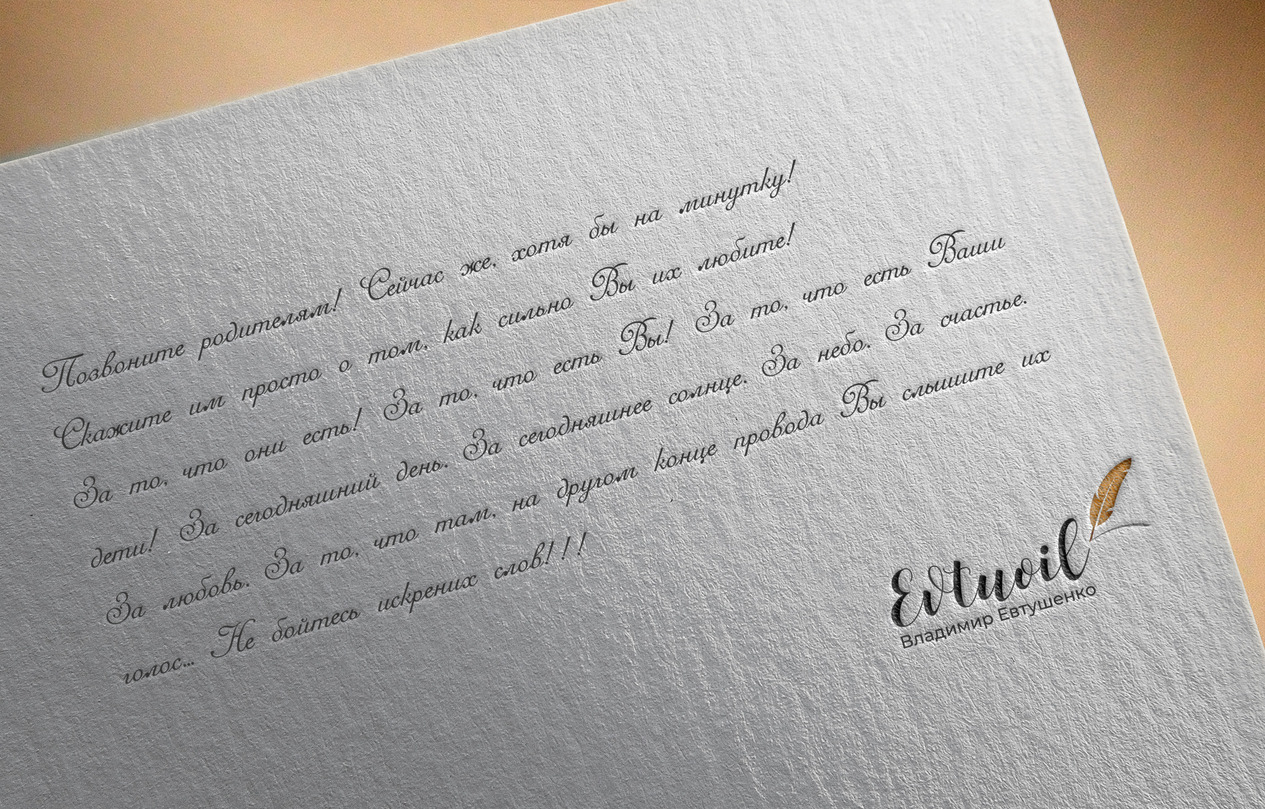 Позвоните родителям! Сейчас же, хотя бы на минутку!
Скажите им просто о том, как сильно Вы их любите!
За то, что они есть! За то, что есть Вы! За то, что есть Ваши
дети! За сегодняшний день. За сегодняшнее солнце. За небо. За счастье.
За любовь. За то, что там, на другом конце провода Вы слышите их
голос... Не бойтесь искрених слов!!!
Evtuoil
Владимир Евтушенко